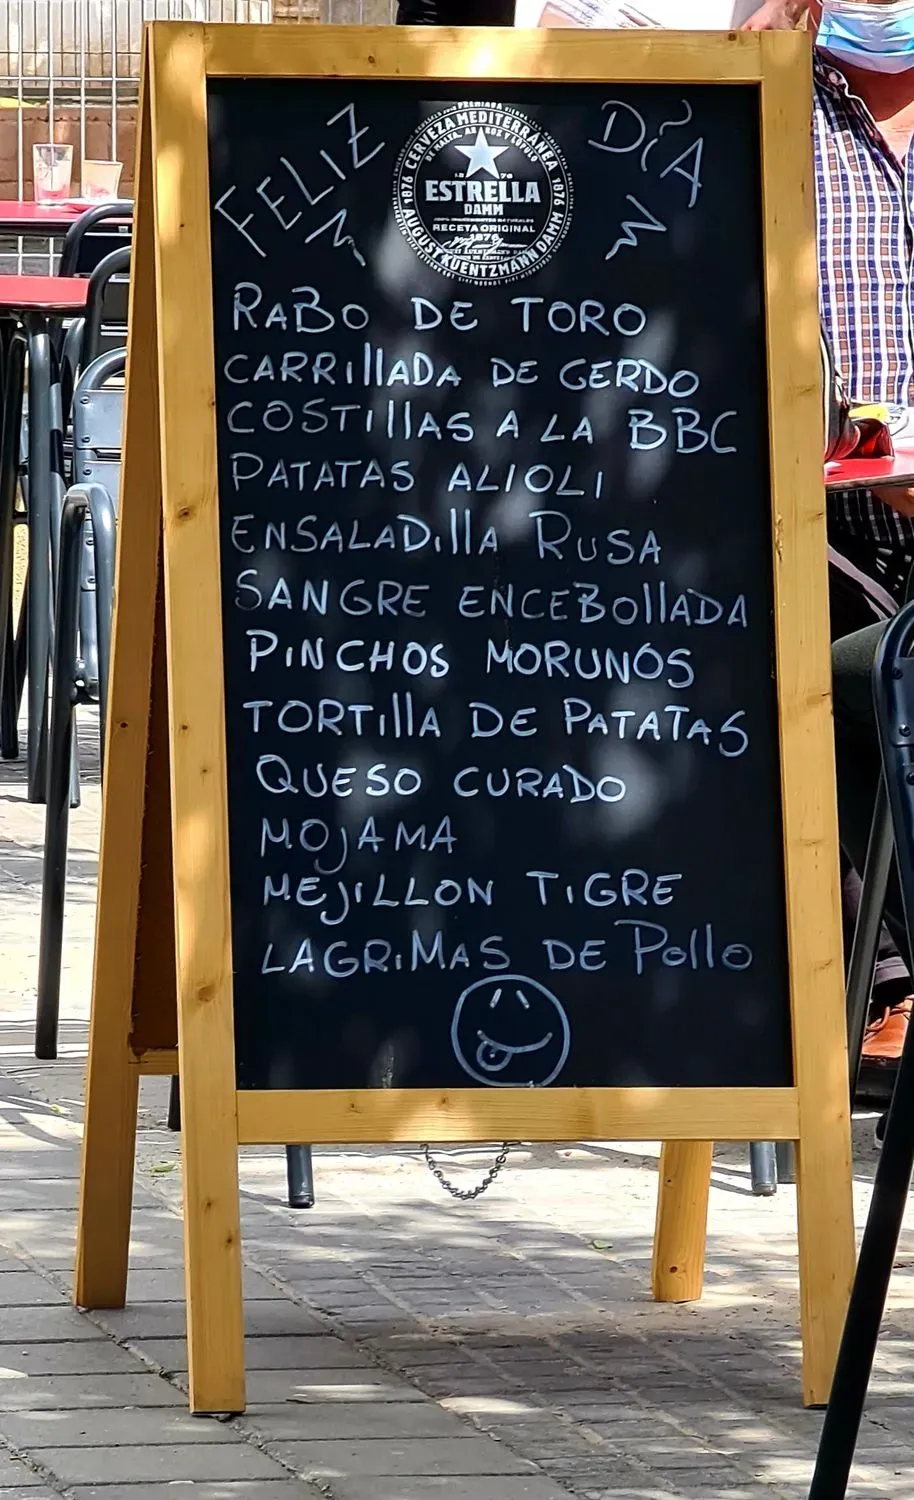 FELIZ DÍA
PREMIADA
CERVEZA MEDITERRÁNEA
DE MALTA, ARROZ Y LÚPULO
1876
1876
1876
ESTRELLA
DAMM
RECETA ORIGINAL
1876
AUGUST KUENTZMANN DAMM
RABO DE TORO
CARRillADA DE CERDO
COSTillAS A LA BBC
PATATAS ALIOLI
ENSALADilla RUSA
SANGRE ENCEBollADA
PiNCHOS MORUNOS
TORTilla DE PATATAS
QUESO CURADO
MOJAMA
MEJiLLON TiGRE
LAGRiMAS DE Pollo